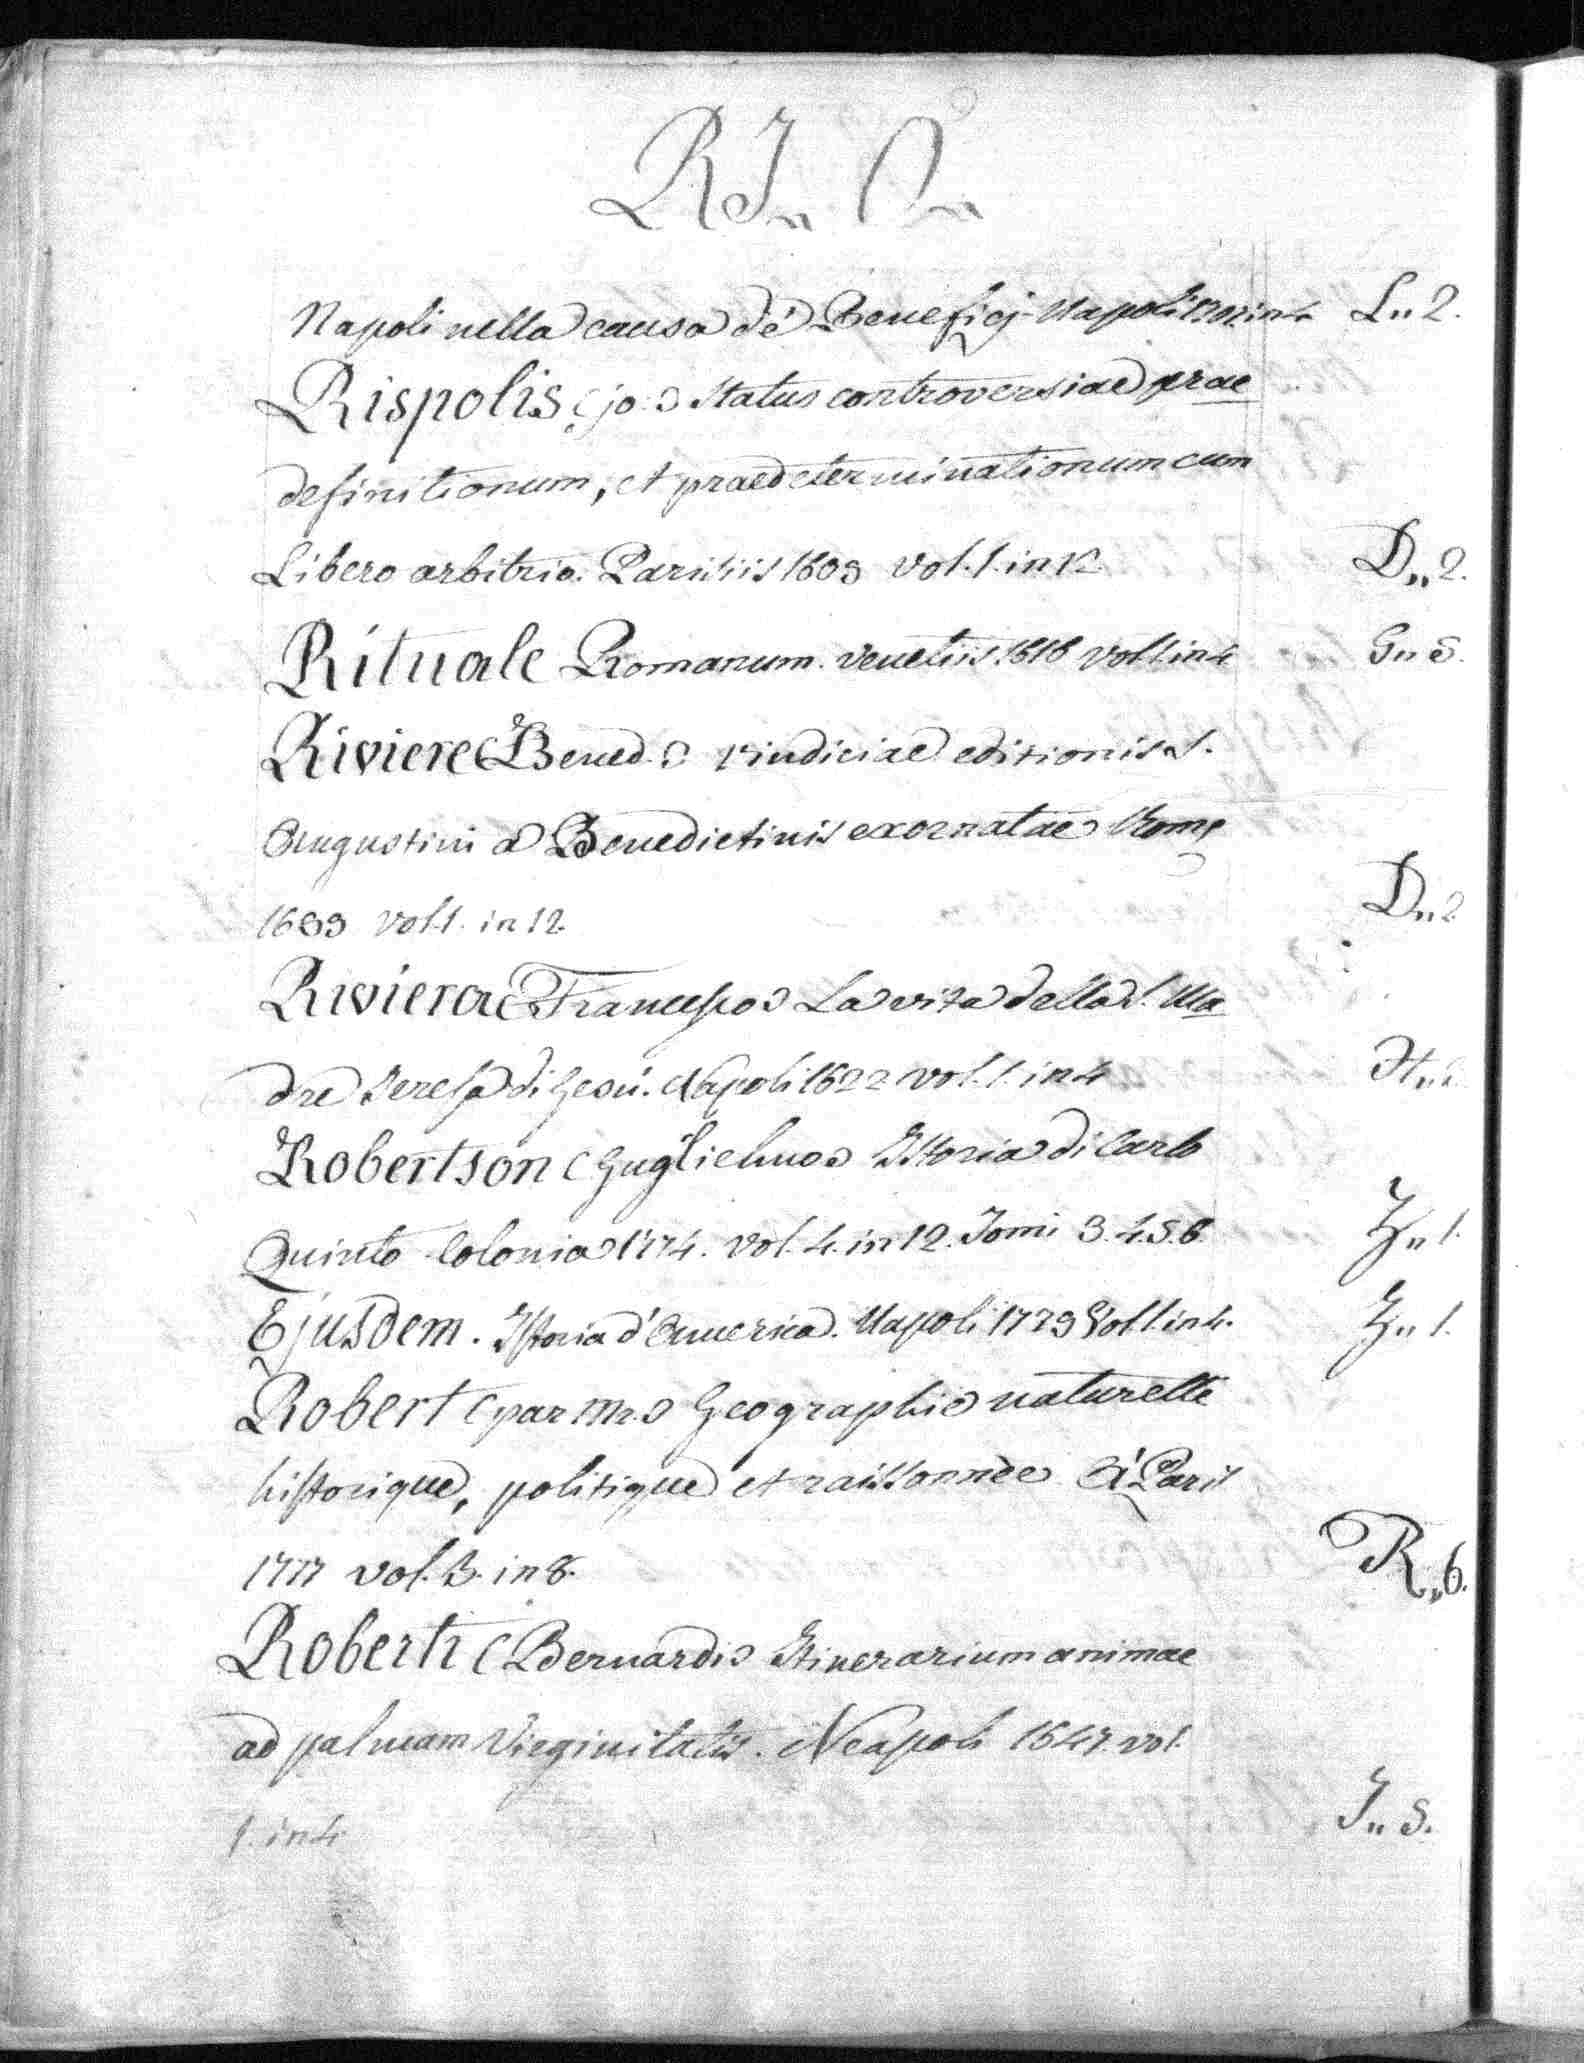 RI„ O„
Napoli nella causa de' Beneficj. Napoli 1707 in 4 L„ 2.
Rispolis (jo:) Status controversiae prae
definitionum, et praedeterminationum cum
Libero arbitrio. Parisiis 1609 vol. 1. in 12 D„ 2.
Rituale Romanum. Venetiis 1616 vol. 1. in 4 G„ 5.
Riviere (Bened.) Vindiciae editionis S.
Augustini a Benedictinis exornatae Rome
1699 vol. 1. in 12. D„ 2
Riviera (Francesco) La vita della S. Ma
dre Teresa di Gesù. Napoli 1622 vol. 1. in 4 H„
Robertson (Guglielmo) Istoria di Carlo
Quinto Colonia 1774. vol. 4. in 12. Tomi 3. 4. 5. 6. Z„ 1.
Ejusdem. Istoria d'America. Napoli 1779 Vol. 1. in 4. Z„ 1.
Robert (par Mr.) Geographie naturelle
historique, politique et raissonnèe A' Paris
1777 vol. 3. in 8. R„ 6.
Roberti (Bernardi) Itinerarium animae
ad palmam Virginitatis. Neapoli 1647. vol.
1. in 4. I„ 5.